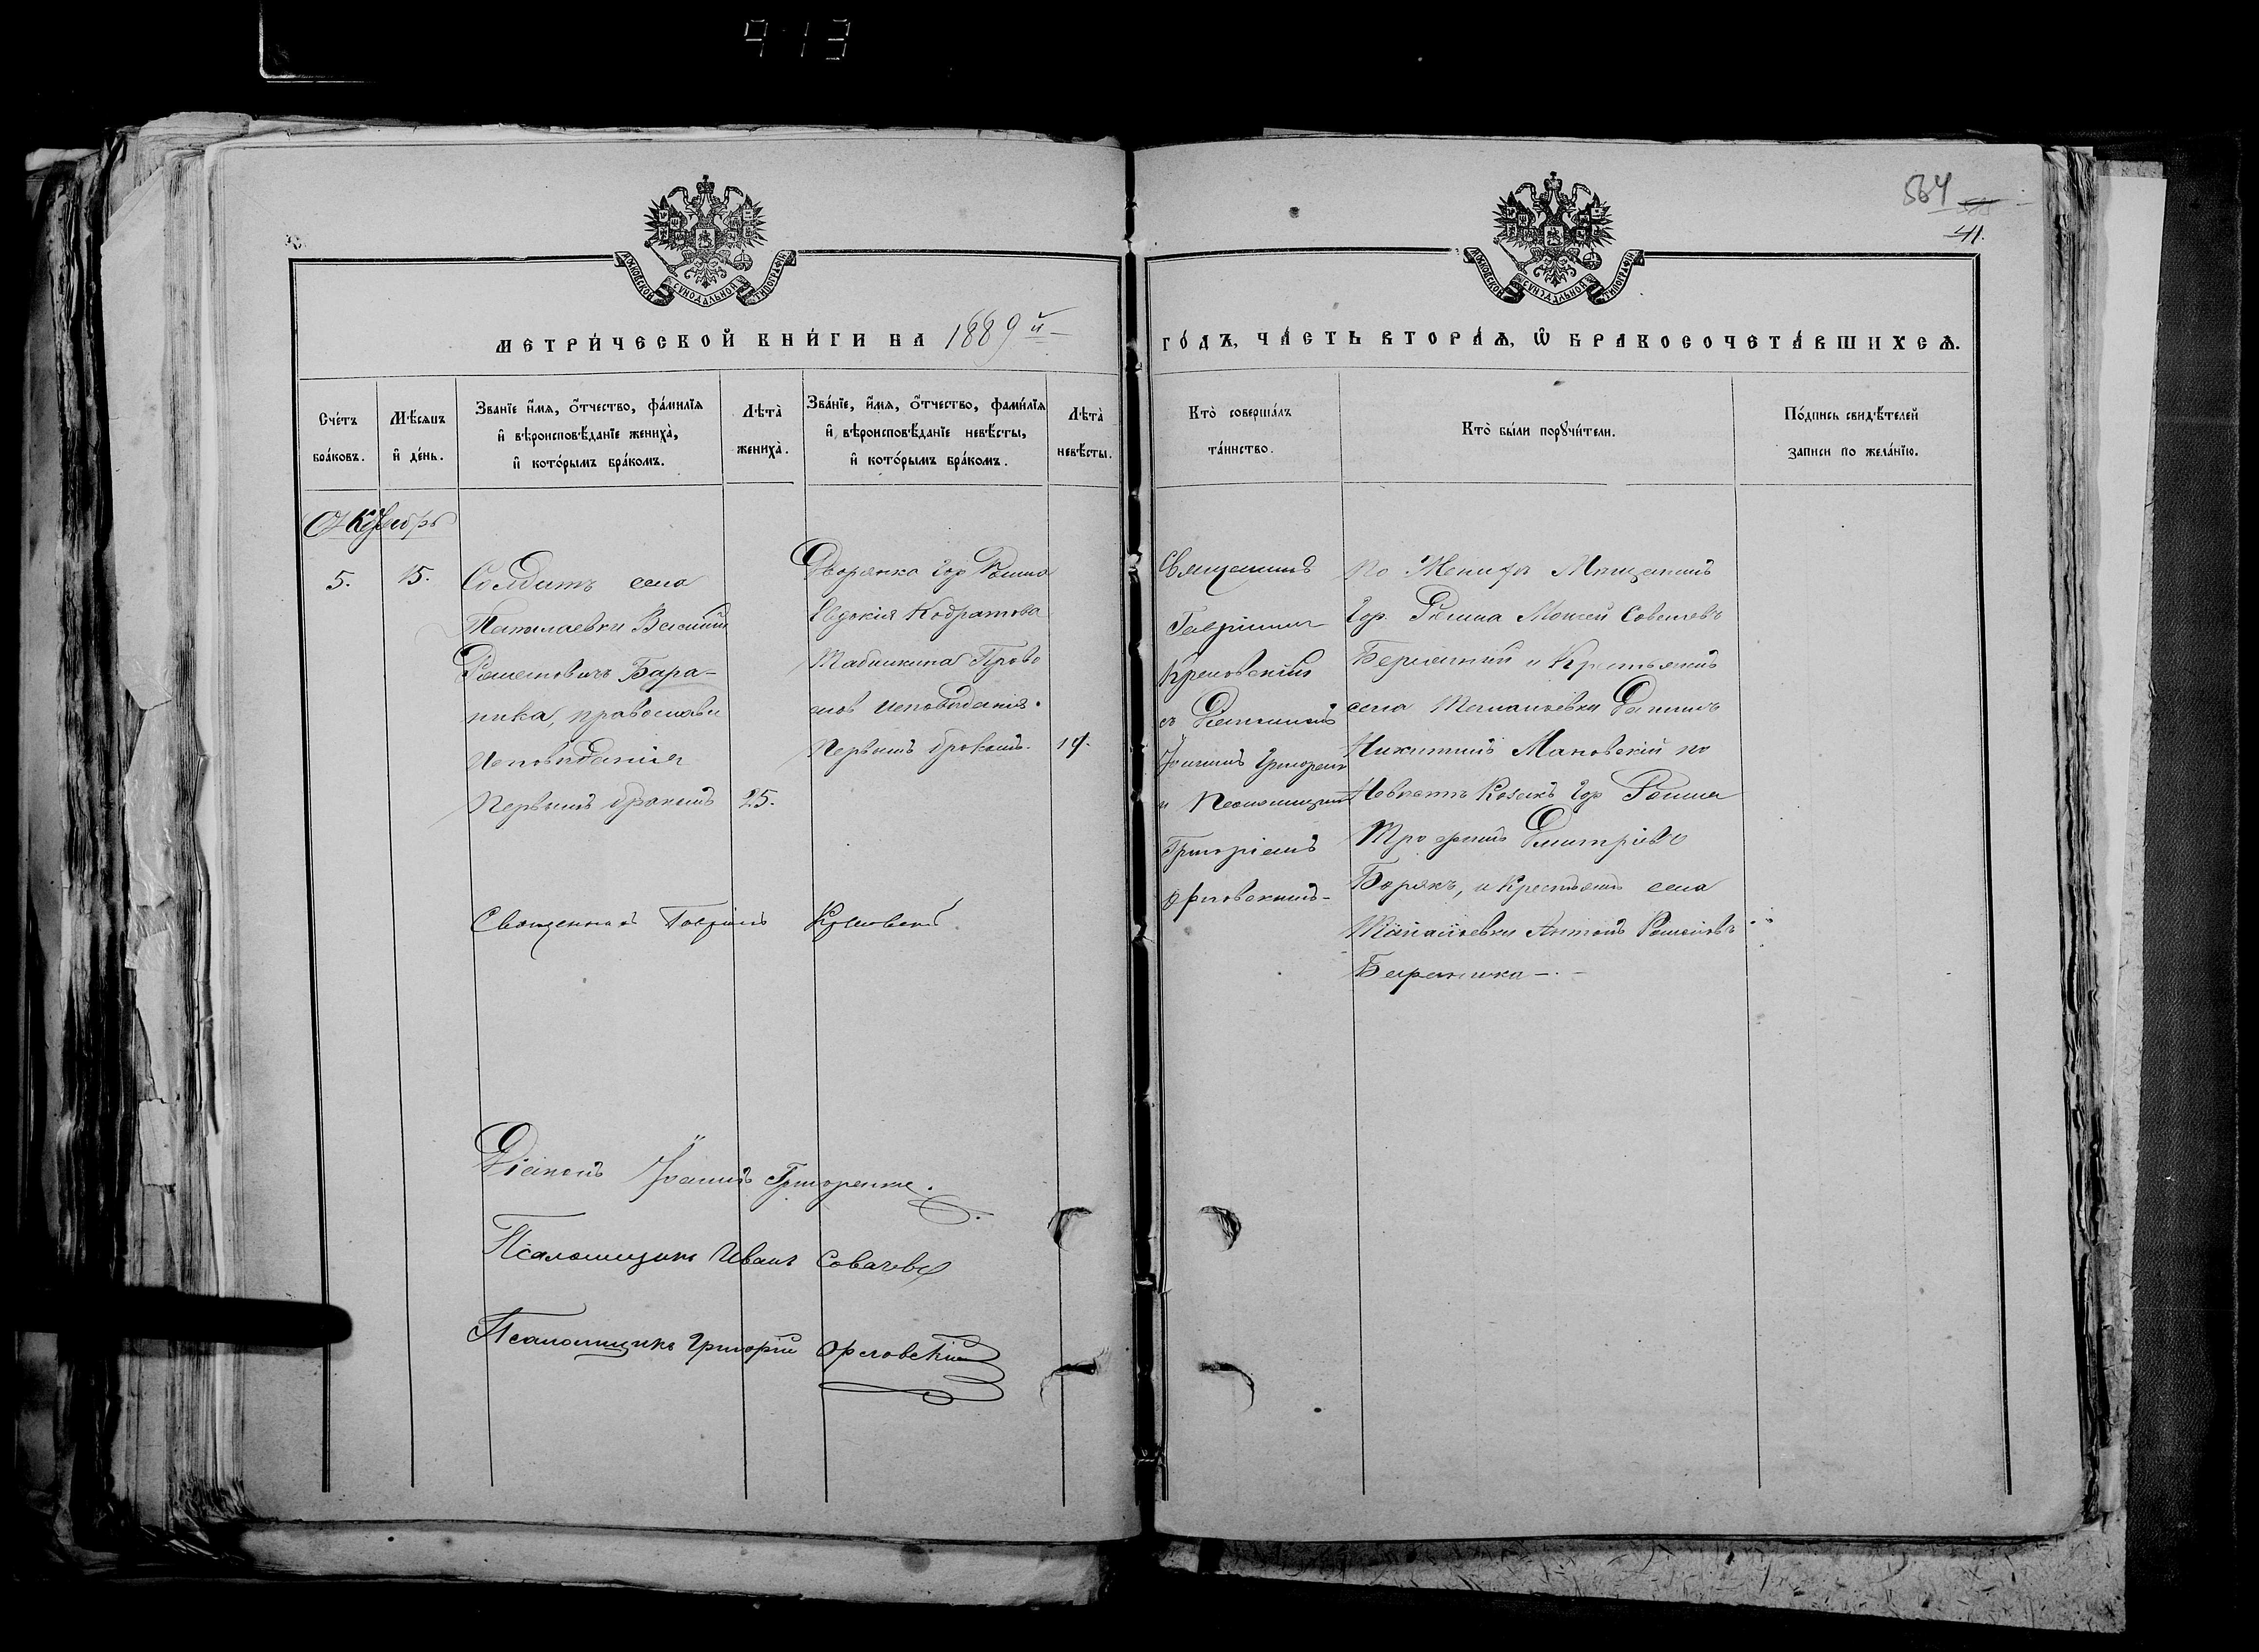 913
564
41.
МОСКОВСКОЙ СУНОДАЛЬНОЙ ТИПОГРАФІИ
МОСКОВСКОЙ СУНОДАЛЬНОЙ ТИПОГРАФІИ
МЕТРИ́ЧЕСКОЙ КНИ́ГИ НА 1889 й
ГО́ДЪ, ЧА́СТЬ ВТОРА́Ѧ, Ѿ БРАКОСОЧЕТА́ВШИХСѦ.
Сче́тъ бра́ковъ.
Мѣ́сѧцъ и҆ де́нь.
Зва́нїе и҆́мѧ, ѻ҆́тчество, фамі́лїѧ и҆ вѣроисповѣ́данїе жениха̀, и҆ кото́рымъ бра́комъ.
Лѣта̀ жениха̀.
Зва́нїе, и҆́мѧ, ѻ҆́тчество, фамі́лїѧ и҆ вѣроисповѣ́данїе невѣ́сты, и҆ кото́рымъ бра́комъ.
Лѣта̀ невѣ́сты.
Кто̀ соверша́лъ та́инство.
Кто̀ бы́ли порꙋчи́тели.
По́дпись свидѣ́телей записи по жела́нїю.
Октябрь
5.
15.
Солдатъ села
Василій
Романовичъ Бара-
ника, православн
Исповѣданія
Первымъ бракомъ
25.
Дворянка Гор Ромна
Евдокія Кодратова
Право
слов Исповѣданія.
Первымъ бракомъ.
19.
Священникъ
Гавріилъ
Крановскій
съ Діакономъ
Іоанномъ Григоренк
и Псаломщикомъ
Григоріемъ
Орловскимъ-
По Женихѣ Мѣщанинъ
Гор. Ромна Моисей
и Крестьянинъ
села
Никитинъ Мановскій по
Невѣстѣ Козакъ Гор Ромна
Трофимъ Дмитріевъ
Борякъ, и Крестьянинъ села
Антонъ Романовъ
Бараника -.-
Священникъ Гавріилъ
Діаконъ Іоаннъ Григоренко.
Псаломщикъ Иванъ
Псаломщикъ Григорій Орловскій